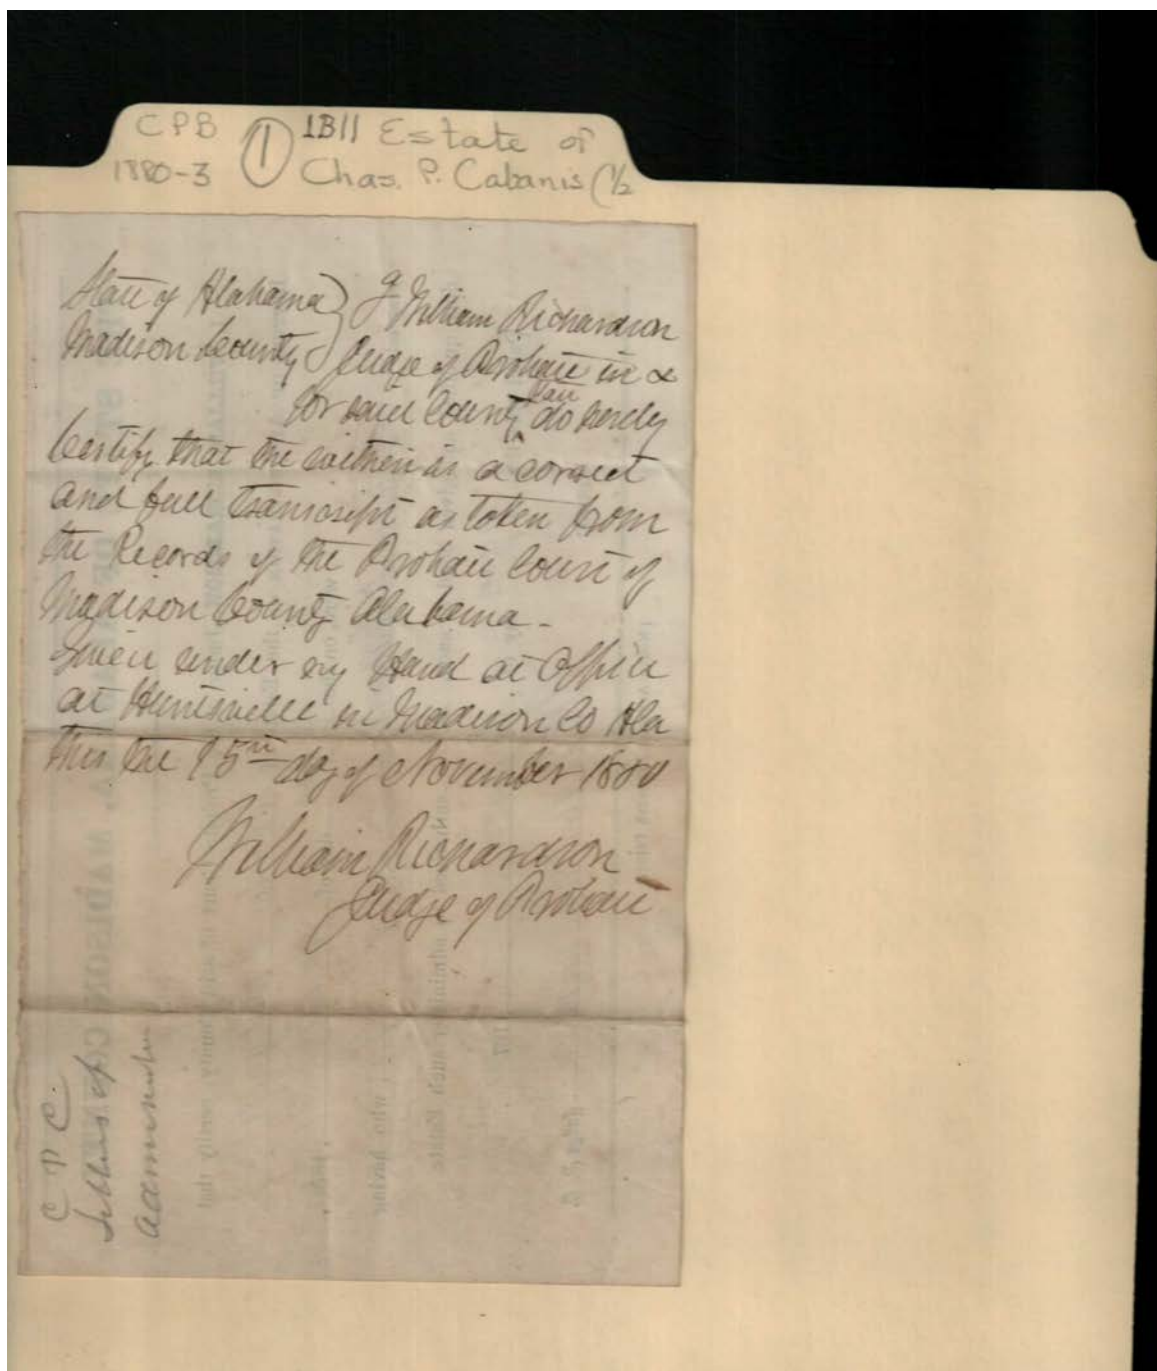 CPB ① 1B11 Estate of
1880-3 Chas. P. Cabanis (1/2
State of Alabama } I William Richardson
Madison County } Judge of Probate in &
for said County, do hereby
Certify that the within is a correct
and full transcript as taken from
the Records of the Probate Court of
Madison County Alabama -
Given under my Hand at Office
at Huntsville in Madison Co Ala
this the 15th day of November 1880
William Richardson
Judge of Probate
C P C.
Letters of